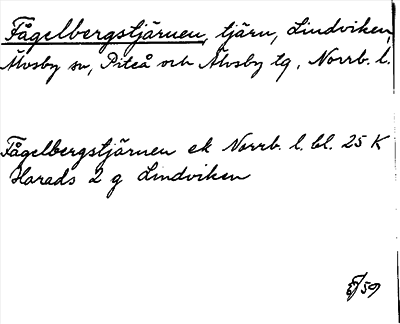 Fågelbergstjärnen, tjärn, Lindviken,
Älvsby sn, Piteå och Älvsby tg, Norrb. l.
Fågelbergstjärnen ek Norrb. l. bl. 25 K
Harads 2 g Lindviken
/59